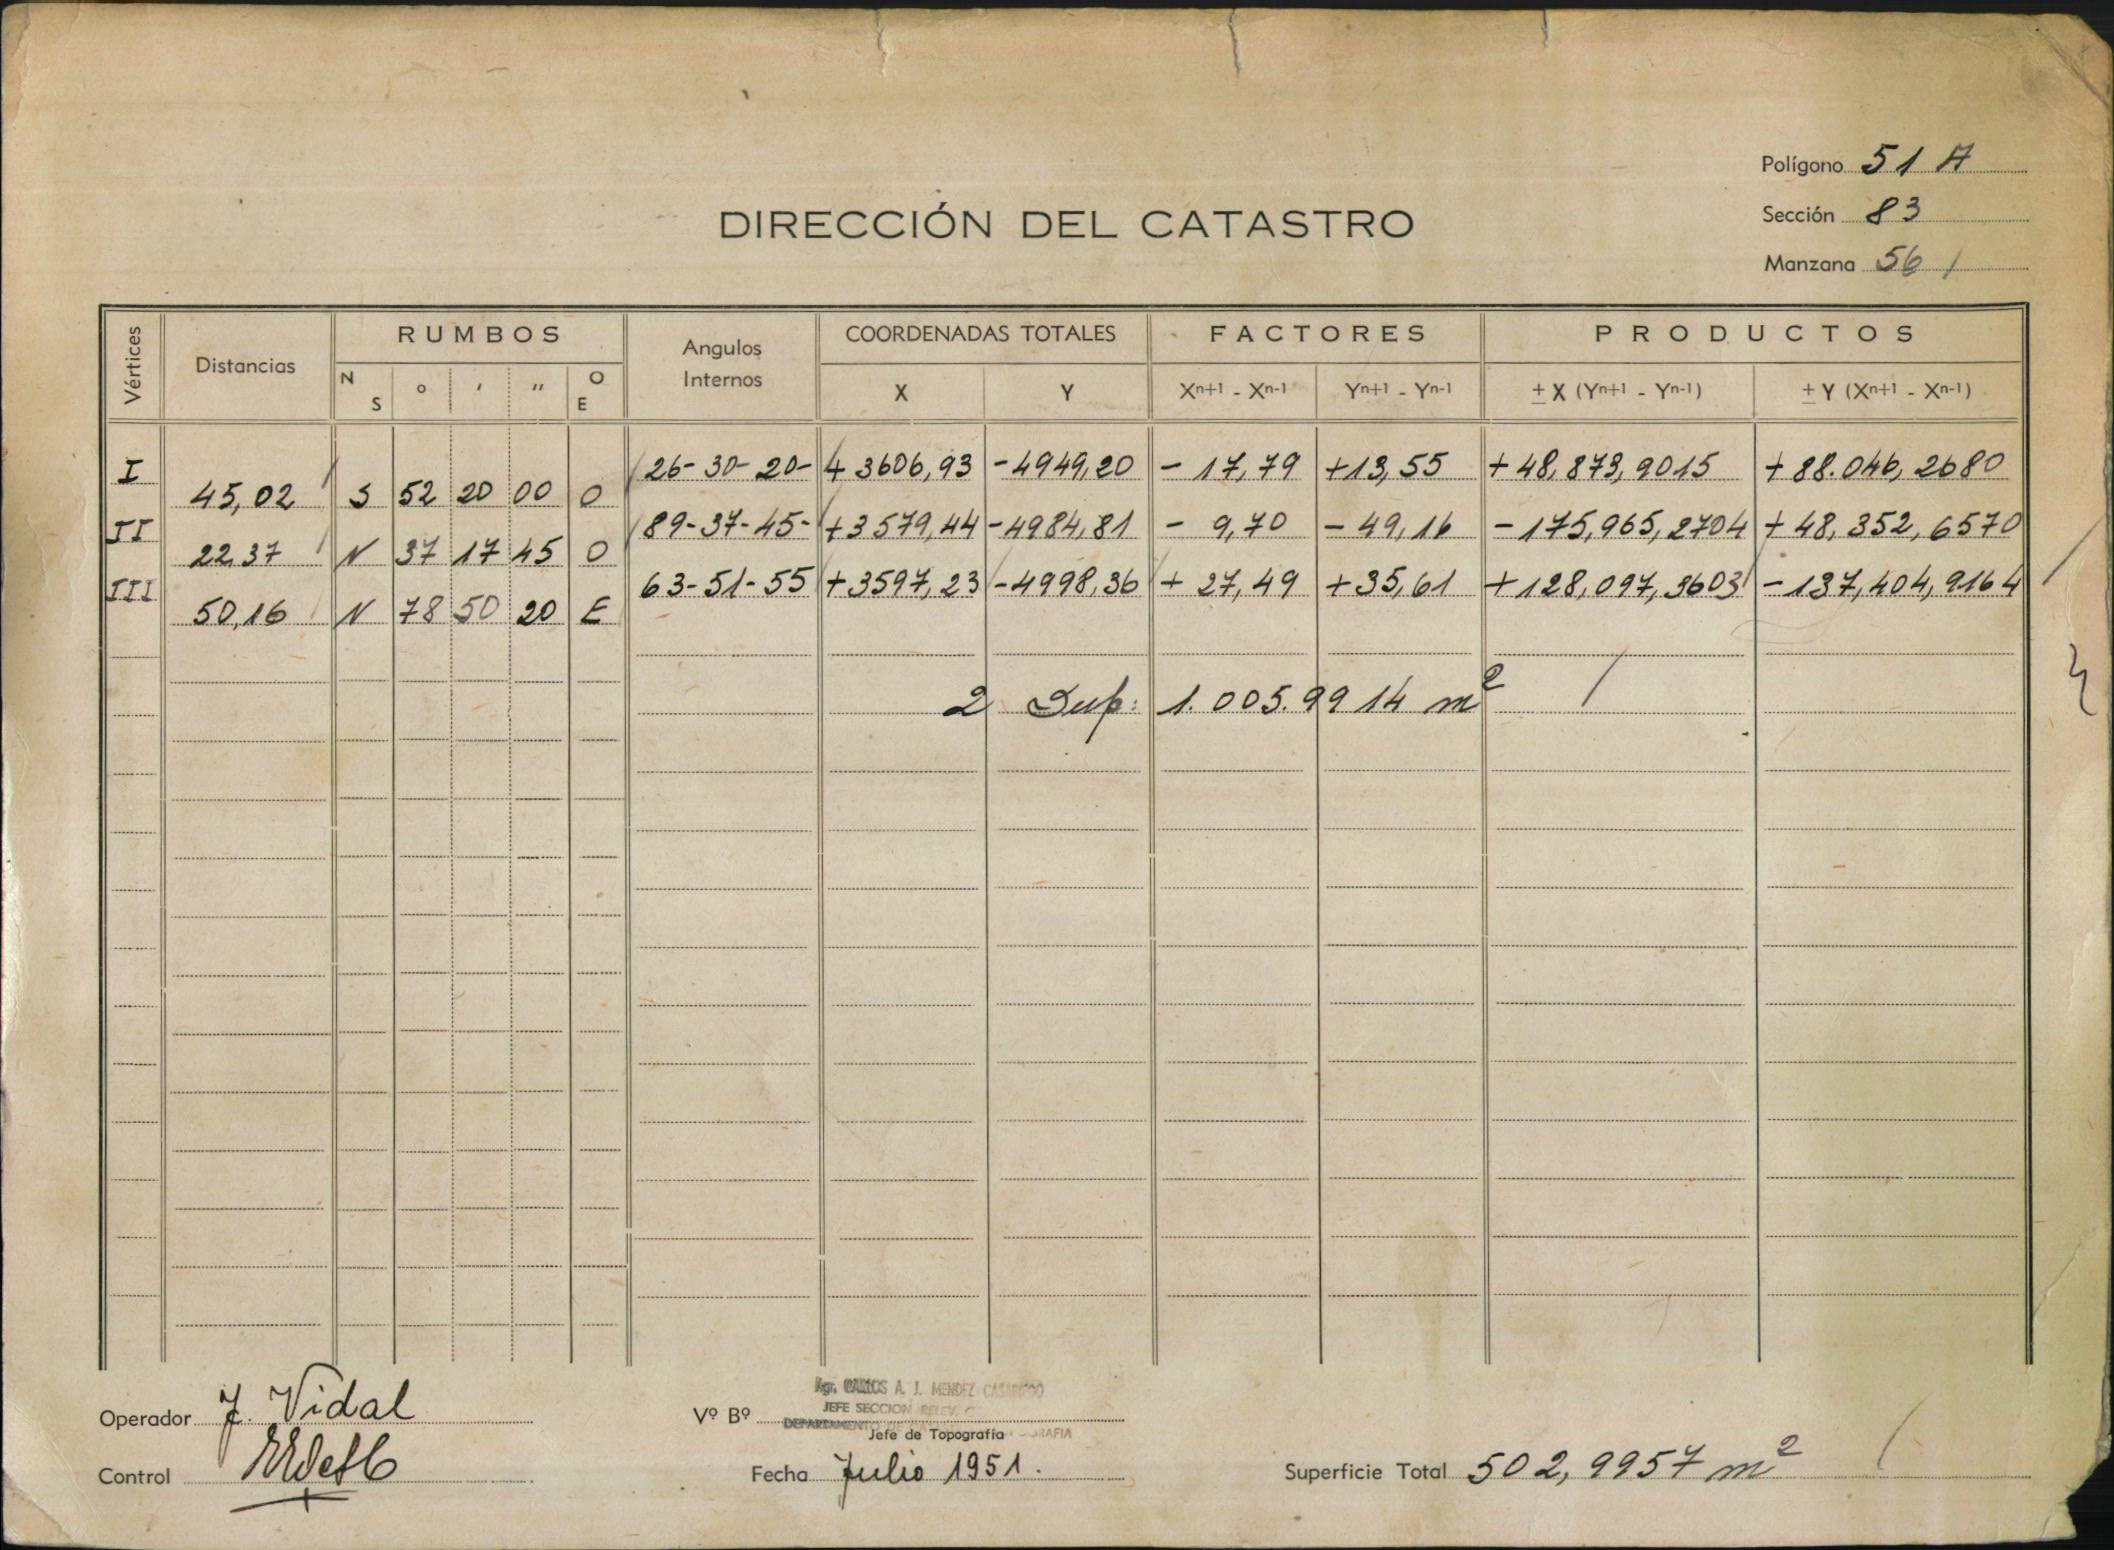 Polígono 51 A
Sección 83
Manzana 56
DIRECCIÓN DEL CATASTRO
Vértices Distancias RUMBOS Angulos Internos COORDENADAS TOTALES FACTORES PRODUCTOS
N S o ' " O E X Y Xn+1 - Xn-1 Yn+1 - Yn-1 ± X (Yn+1 - Yn-1) ± Y (Xn+1 - Xn-1)
I 26-30-20- +3606,93 -4949,20 - 17,79 +13,55 +48,873,9015 +88.046,2680
45,02 S 52 20 00 O
II 89-37-45- +3579,44 -4984,81 - 9,70 - 49,16 -175,965,2704 +48,352,6570
22,37 N 37 17 45 O
III 63-51-55 +3597,23 -4998,36 + 27,49 +35,61 +128,097,3603 -137,404,9164
50,16 N 78 50 20 E
2 Sup: 1.005.9914 m²
Operador J. Vidal
Control
Vº Bº
Agr. CARLOS A. J. MENDEZ
JEFE SECCION RELEV.
DEPARTAMENTO
Jefe de Topografía
Fecha Julio 1951.
Superficie Total 502,9957 m²